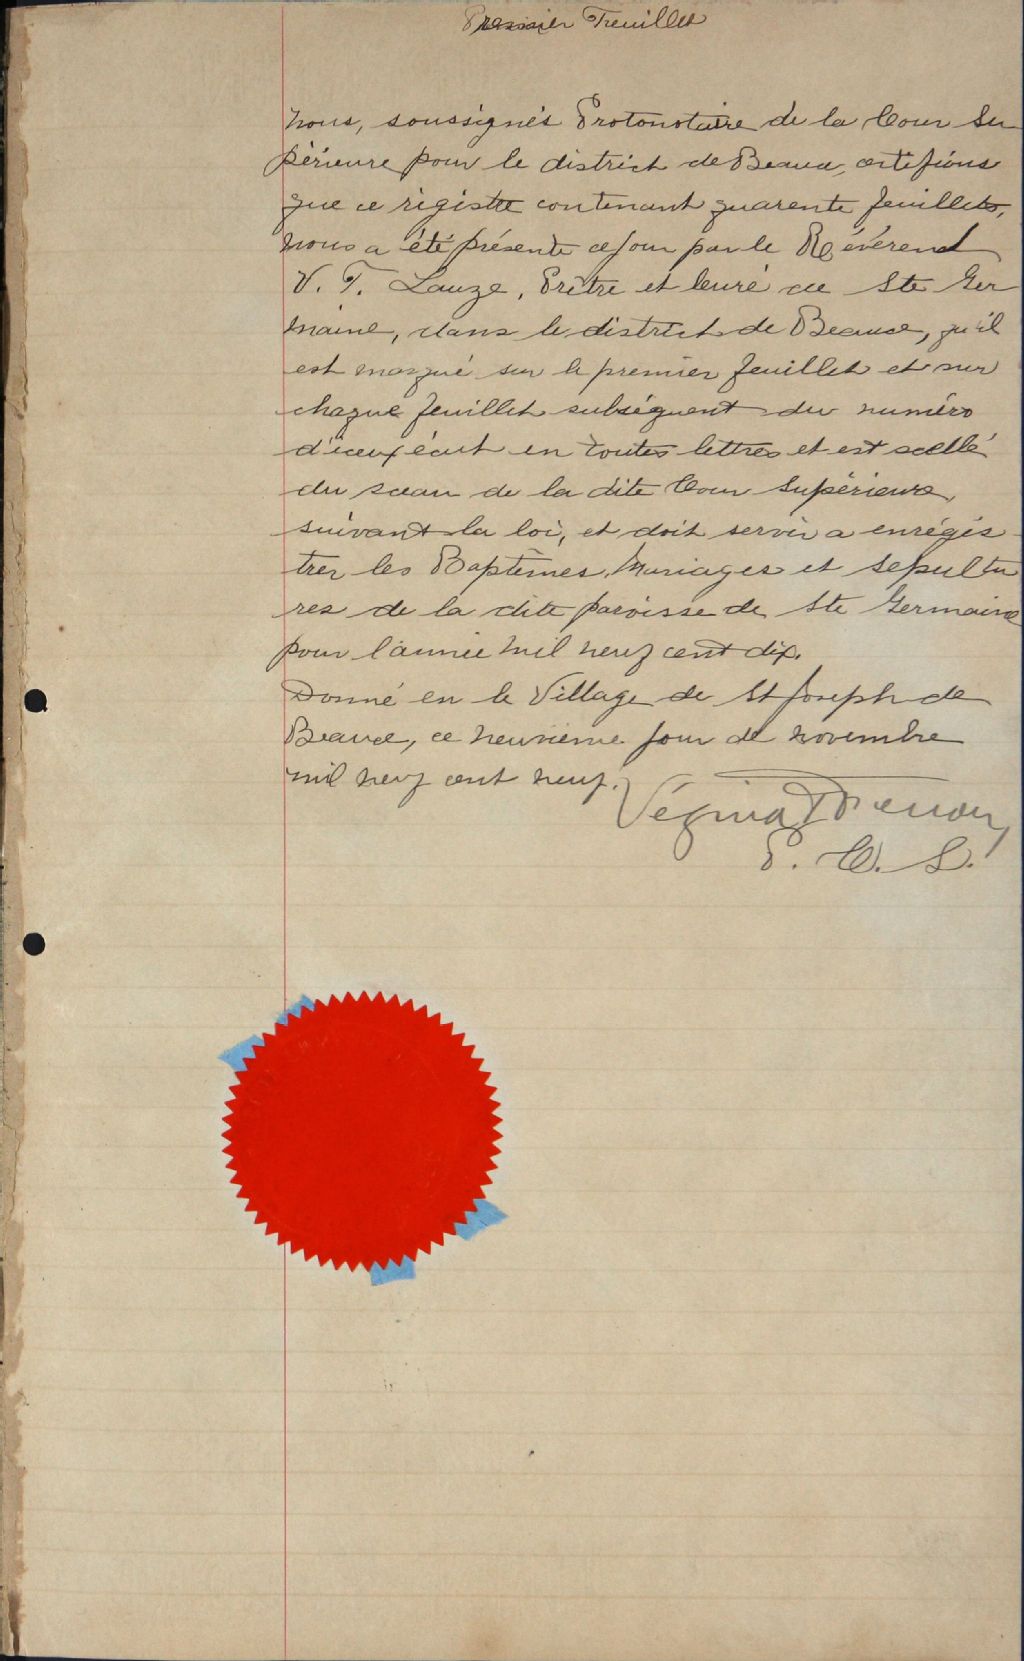 Premier Feuillet
Nous, soussignés Protonotaire de la Cour Su
périeure pour le district de Beauce, certifions
que ce régistre contenant quarente feuillets,
nous a été présente ce jour par le Révérend
V. T. Lauze, Prêtre et Curé de Ste Ger
maine, dans le district de Beauce, qu'il
est marqué sur le premier feuillet et sur
chaque feuillet subséquent du numéro
d'iceux écrit en toutes lettres et est scellé
du sceau de la dite Cour Supérieure,
suivant la loi, et doit servir a enrégis
trer les Baptêmes, Mariages et Sepultu
res de la dite paroisse de Ste Germaine
pour l'année mil neuf cent dix.
Donné en le Village de St Joseph de
Beauce, ce neuvième jour de novembre
mil neuf cent neuf.
Vézina
P. C. S.